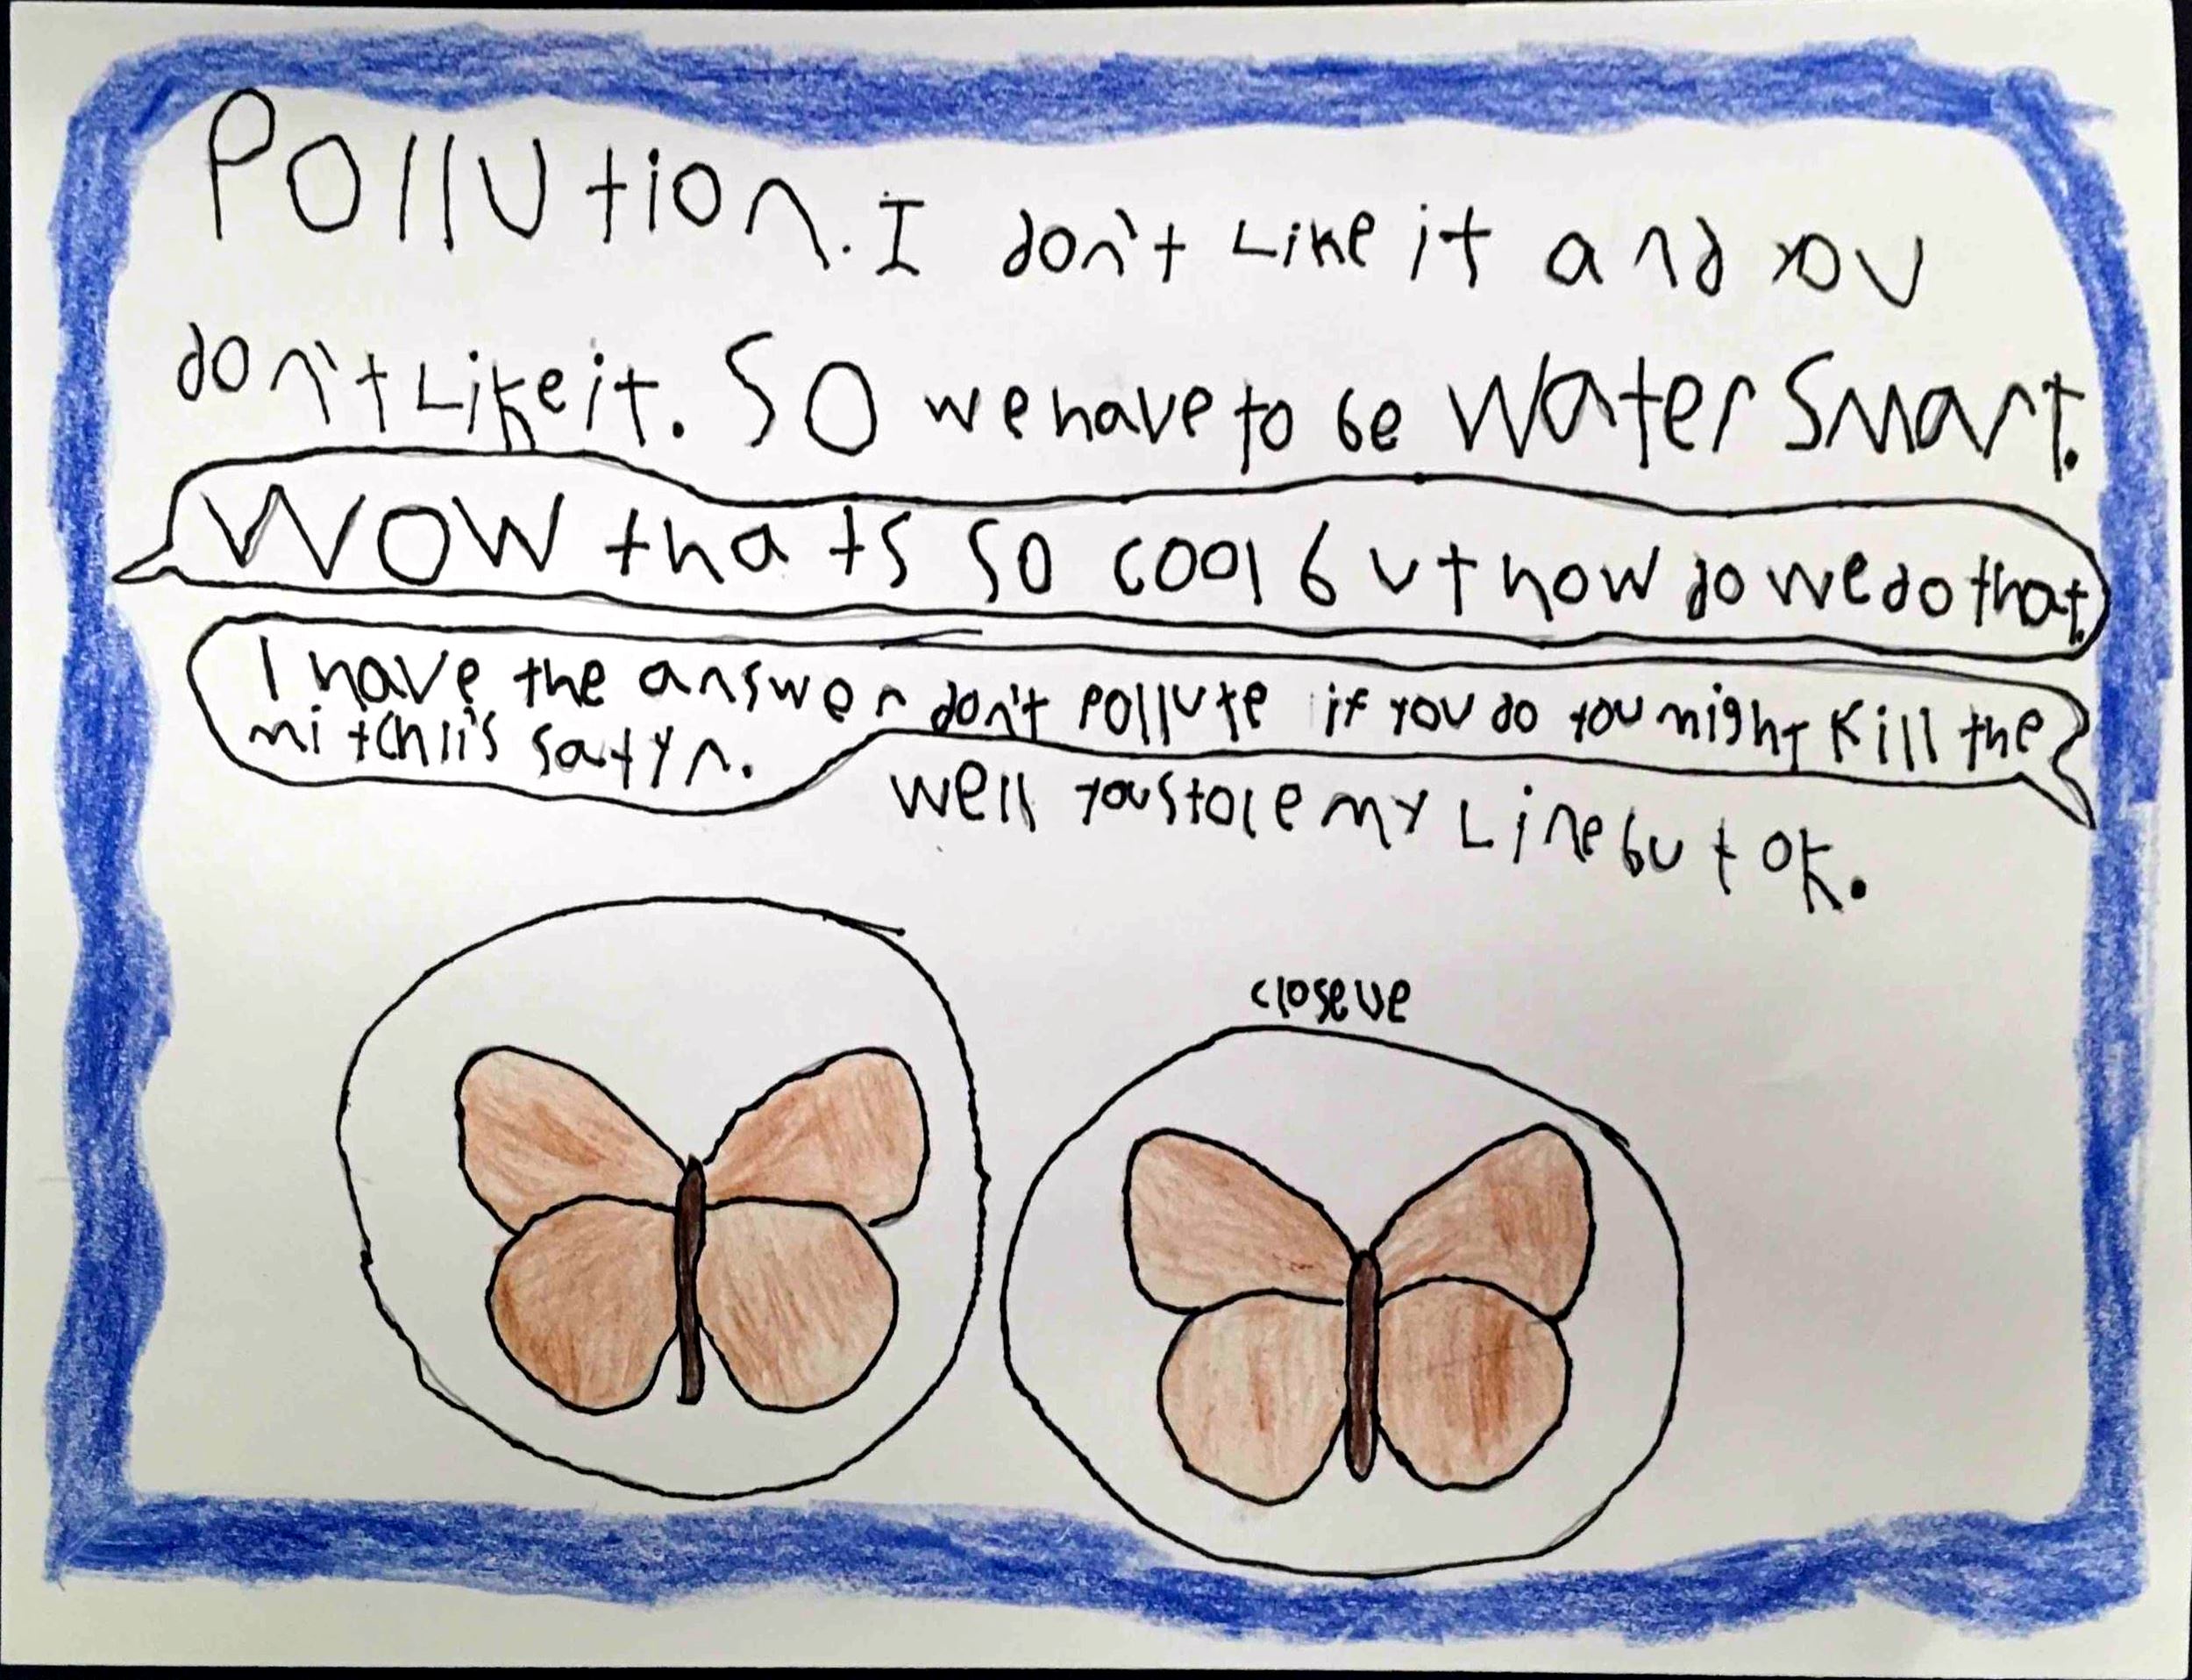 Pollution. I don't Like it and you
don't Like it. So we have to be Water Smart.
WOW thats so cool but how do we do that.
I have the answer don't pollute if you do you might Kill the
mitchli's satyr.
well you stole my Line but ok.
closeup